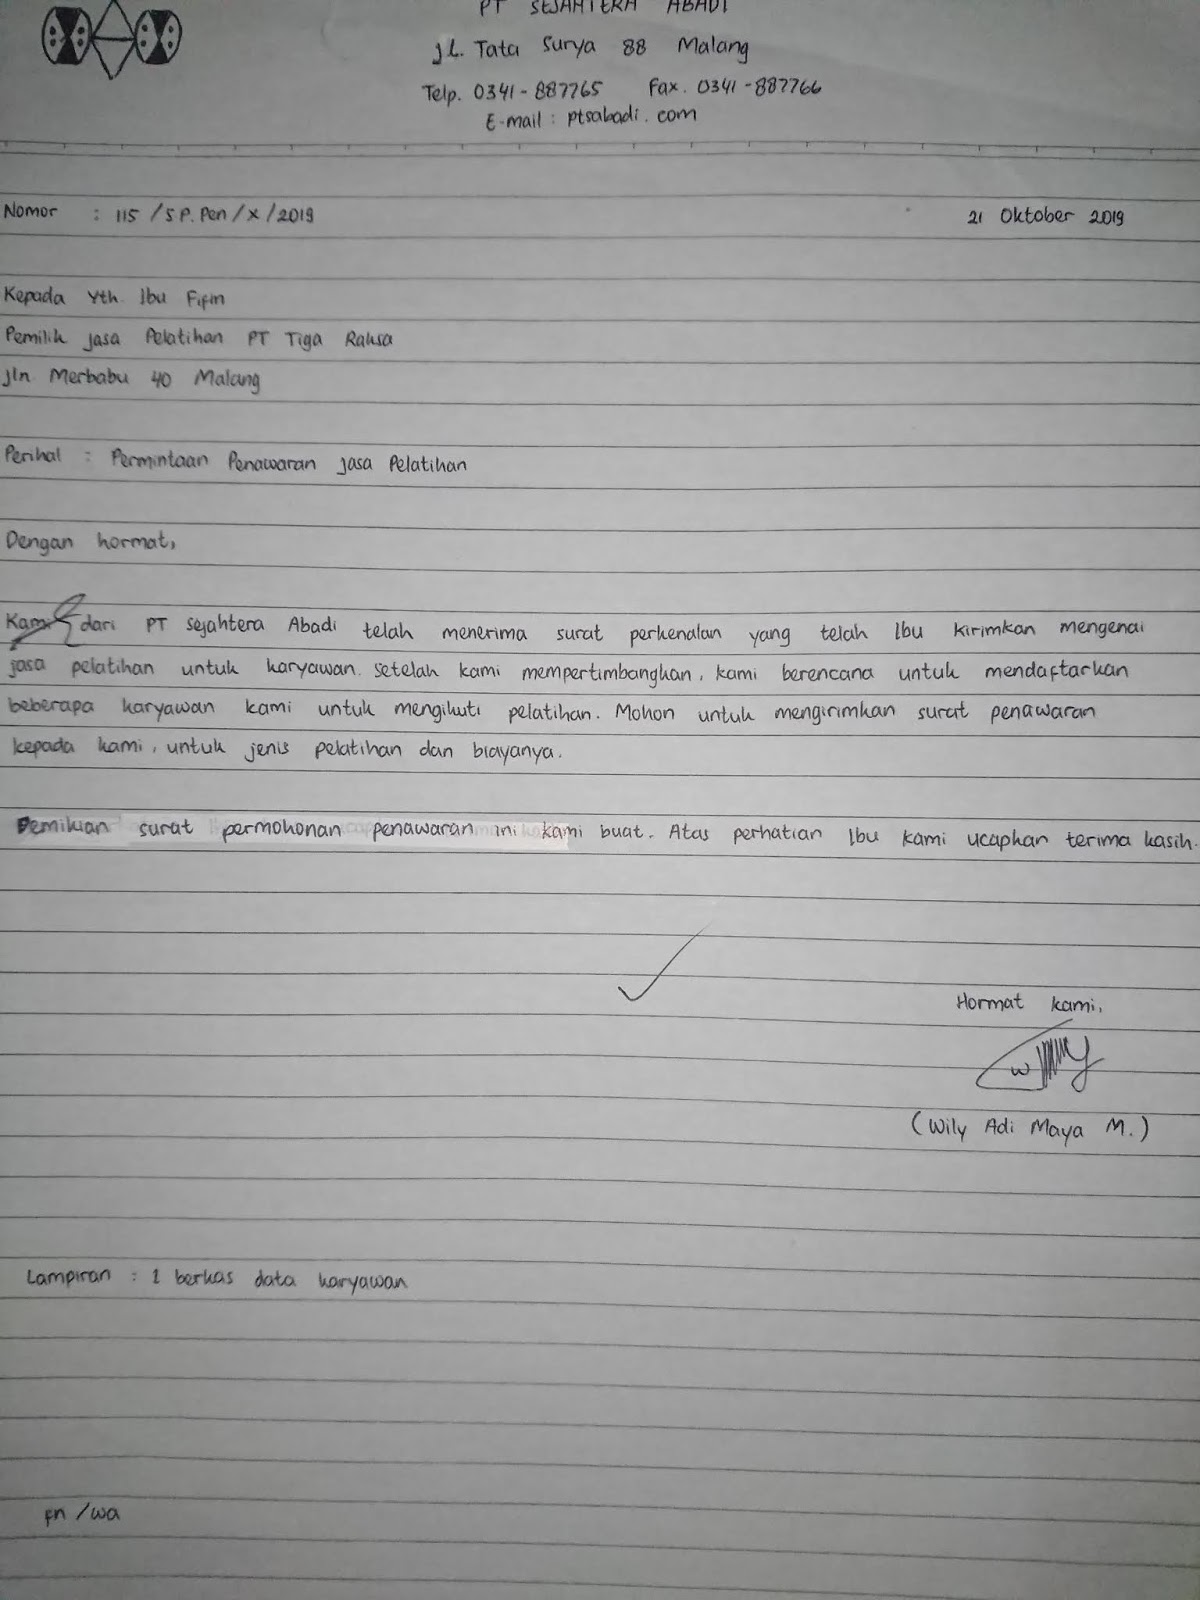 PT SEJAHTERA ABADI
JL. Tata Surya 88 Malang
Telp. 0341-887765 Fax. 0341-887766
E-mail : ptsabadi.com
Nomor : 115 /SP.Pen/X/2019 21 Oktober 2019
Kepada Yth. Ibu Fifin
Pemilik jasa Pelatihan PT Tiga Raksa
Jln Merbabu 40 Malang
Perihal : Permintaan Penawaran Jasa Pelatihan
Dengan hormat,
Kami dari PT Sejahtera Abadi telah menerima surat perkenalan yang telah Ibu kirimkan mengenai
jasa pelatihan untuk karyawan. Setelah kami mempertimbangkan, kami berencana untuk mendaftarkan
beberapa karyawan kami untuk mengikuti pelatihan. Mohon untuk mengirimkan surat penawaran
kepada kami, untuk jenis pelatihan dan biayanya.
Demikian surat permohonan penawaran ini kami buat. Atas perhatian Ibu kami ucapkan terima kasih.
Hormat kami,
(Wily Adi Maya M.)
Lampiran : 1 berkas data karyawan
Fn /wa